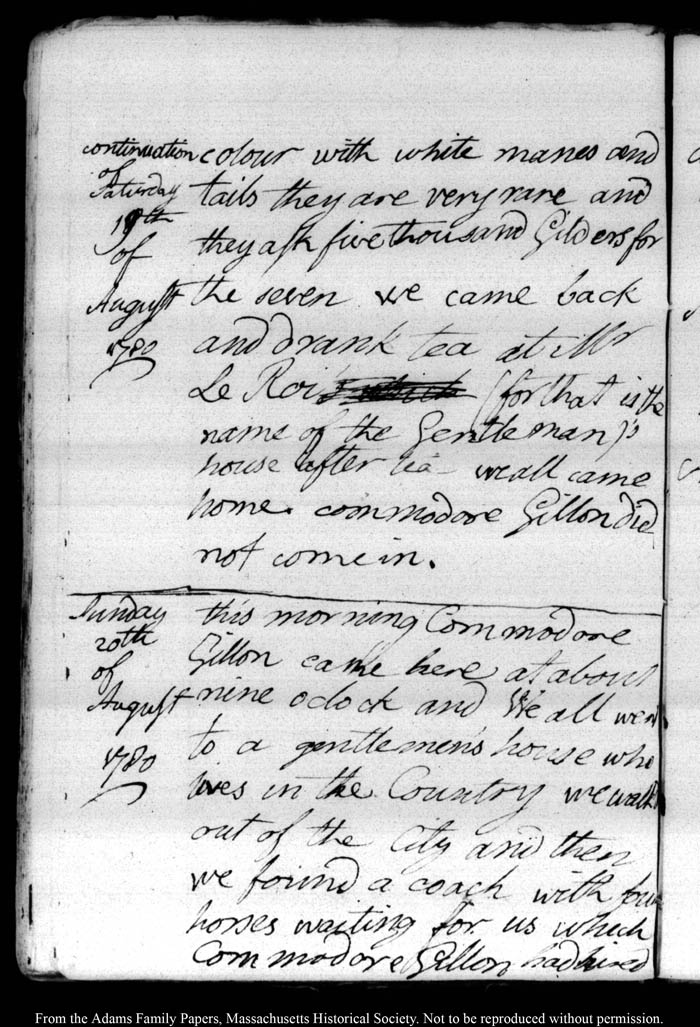 continuation
of
Saturday
19th
of
August
1780
colour with white manes and
tails they are very rare and
they ask five thousand Gilders for
the seven we came back
and drank tea at Mr
Le Roi's (for that is the
name of the Gentleman)s
house after tea we all came
home. commodore Gillon did
not come in.
Sunday
20th
of
August
1780
this morning Commodore
Gillon came here at about
nine oclock and We all went
to a gentlemen's house who
lives in the Country we walk
out of the City and then
we found a coach with four
horses waiting for us which
Commodore Gillon had hired
From the Adams Family Papers, Massachusetts Historical Society. Not to be reproduced without permission.